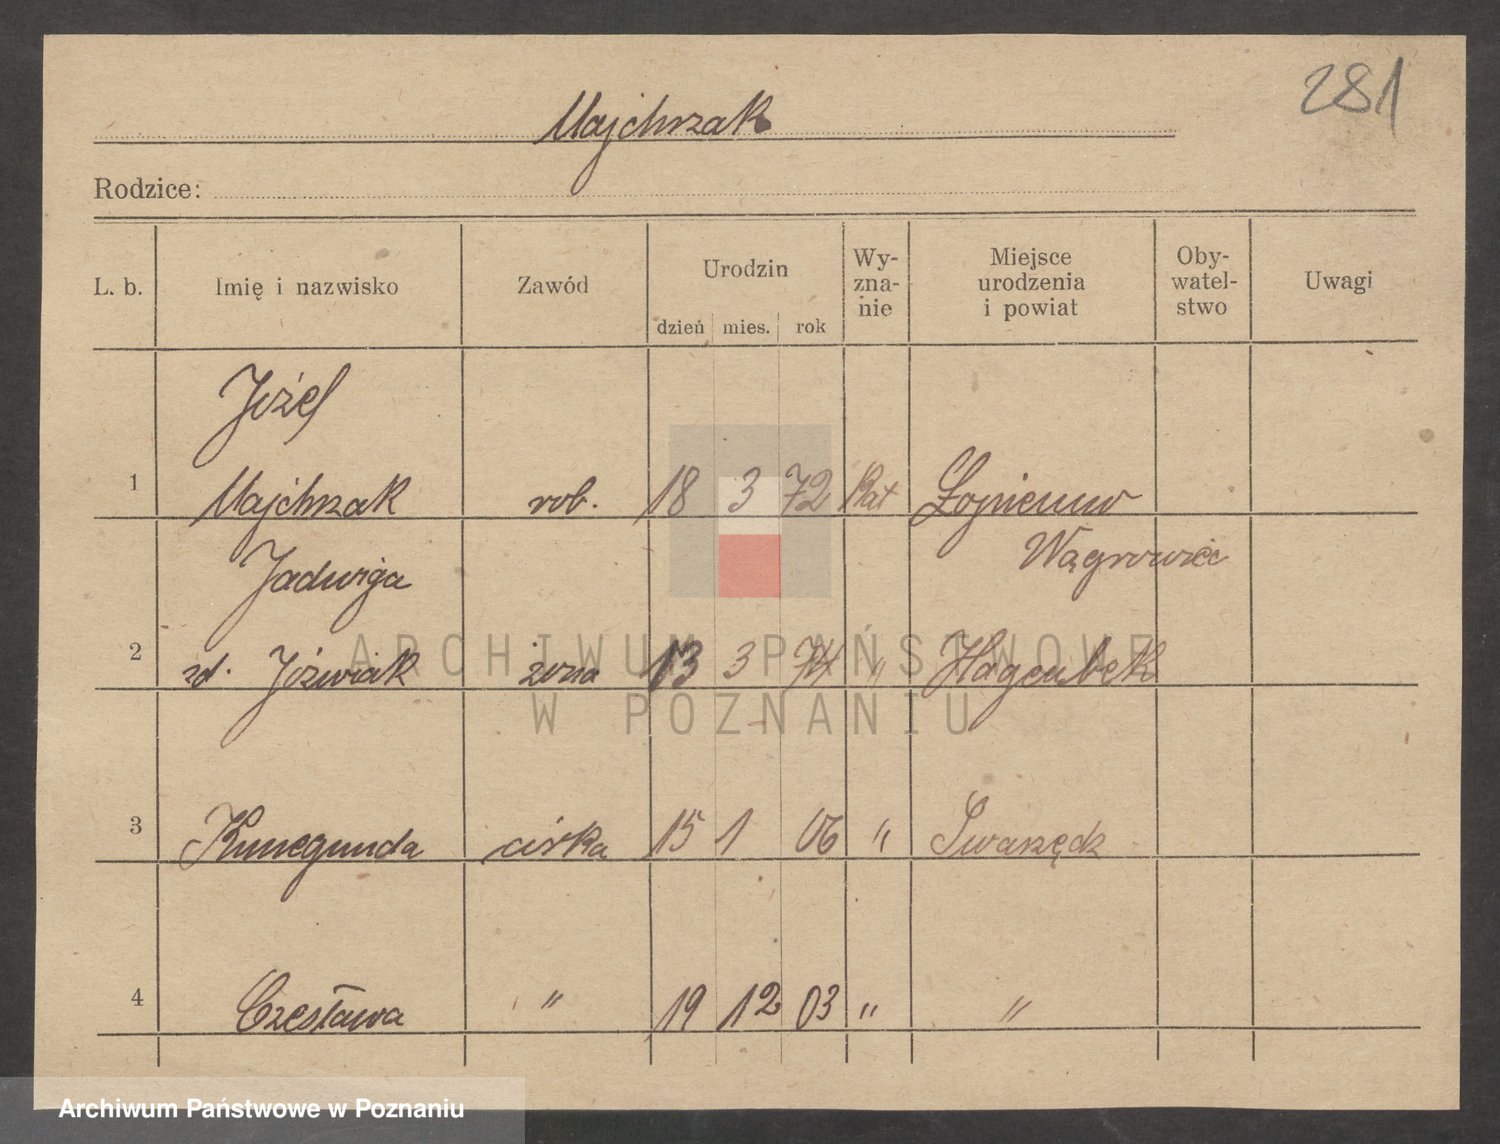 281
Majchrzak
Rodzice:
L. b. Imię i nazwisko Zawód Urodzin dzień mies. rok Wy-zna-nie Miejsce urodzenia i powiat Oby-watel-stwo Uwagi
Józef
1 Majchrzak rob. 18 3 72 Kat
Wągrowiec
Jadwiga
2 zd. Jóźwiak żona 13 3 74 "
3 Kunegunda córka 15 1 06 " Swarzędz
4 Czesława " 19 12 03 " "
ARCHIWUM PAŃSTWOWE
W POZNANIU
Archiwum Państwowe w Poznaniu